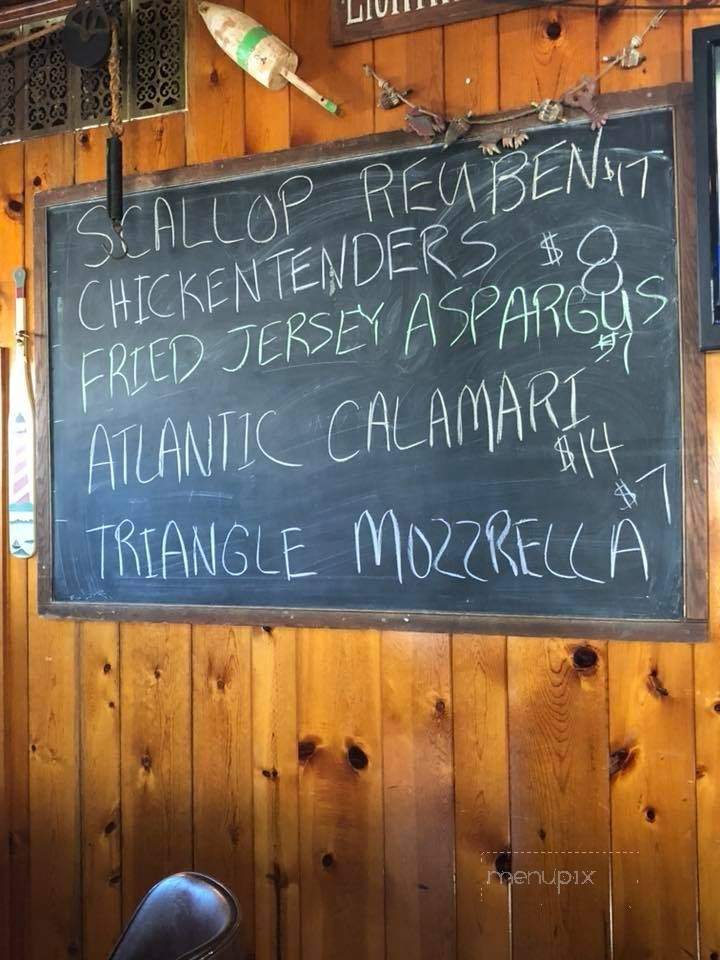 SCALLOP REUBEN $17
CHICKEN TENDERS $8
FRIED JERSEY ASPARGUS
$7
ATLANTIC CALAMARI
$14
$7
TRIANGLE MOZZRELLA
menupix